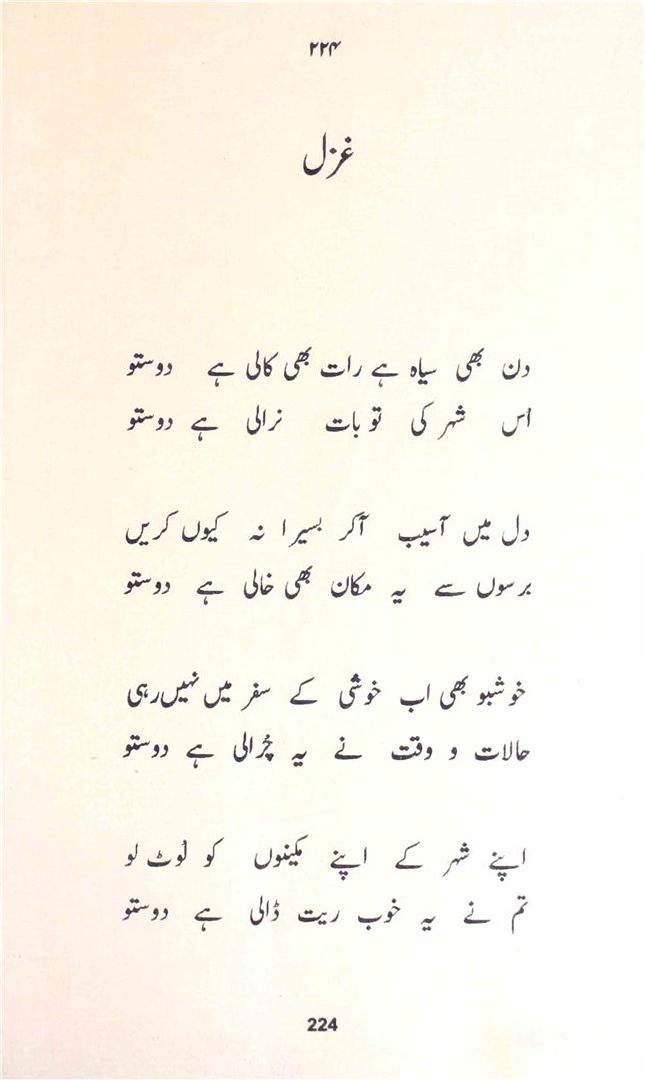 ۲۲۴
غزل
دن بھی سیاہ ہے رات بھی کالی ہے دوستو
اُس شہر کی تو بات نرالی ہے دوستو
دل میں آسیب آکر بسیرا نہ کیوں کریں
برسوں سے یہ مکان بھی خالی ہے دوستو
خوشبو بھی اب خوشی کے سفر میں نہیں رہی
حالات و وقت نے یہ چُرالی ہے دوستو
اپنے شہر کے اپنے مکینوں کو لُوٹ لو
تم نے یہ خوب ریت ڈالی ہے دوستو
224